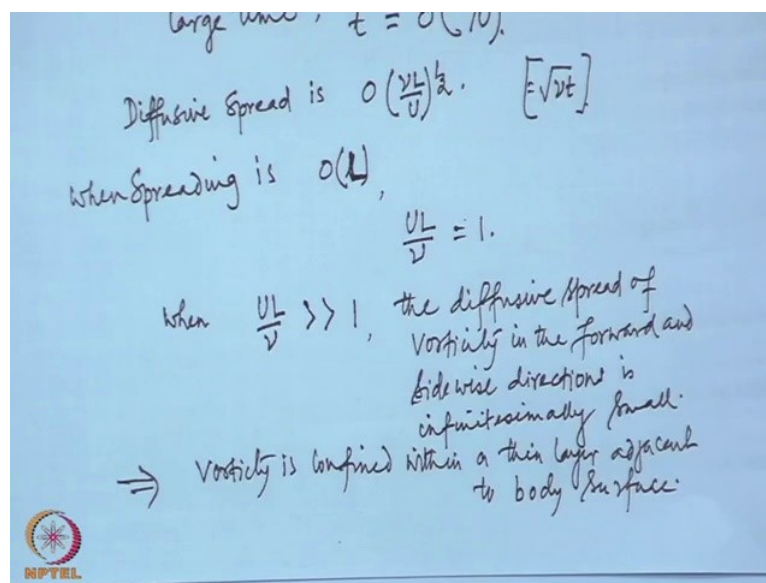 large time, t = O(L/U).
Diffusive spread is O(νL/U)^½. [=√νt]
when spreading is O(L),
UL/ν = 1.
when UL/ν >> 1, the diffusive spread of
vorticity in the forward and
sidewise directions is
infinitesimally small.
⇒ Vorticity is confined within a thin layer adjacent
to body surface.
NPTEL